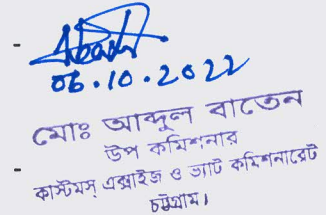 06.10.2022
মোঃ আব্দুল বাতেন
উপ কমিশনার
কাস্টমস্ এক্সাইজ ও ভ্যাট কমিশনারেট
চট্টগ্রাম।